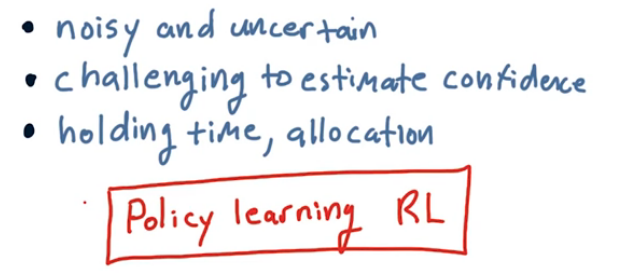 • noisy and uncertain
• challenging to estimate confidence
• holding time, allocation
Policy learning RL